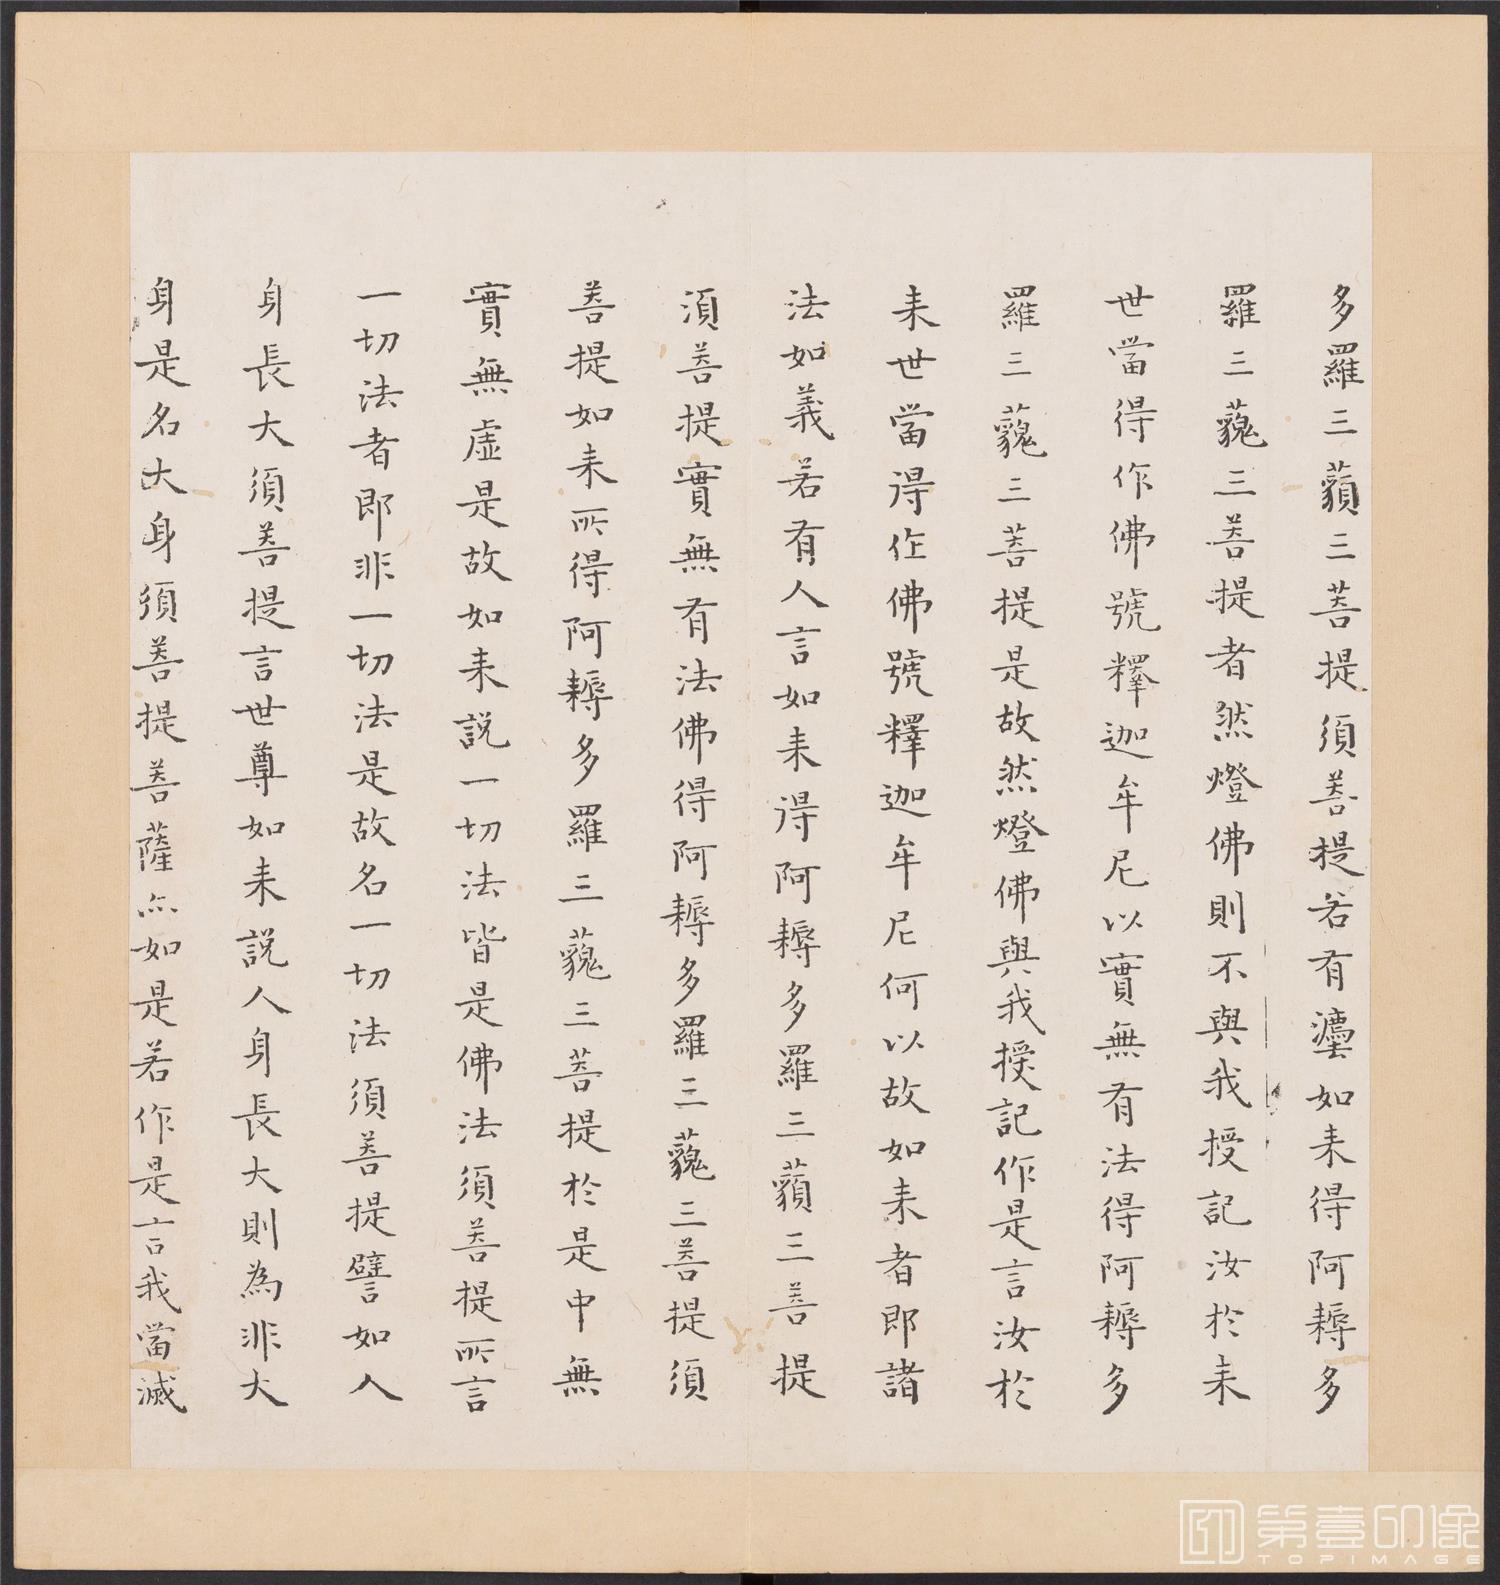 多羅三藐三菩提須菩提若有灋如来得阿耨多
羅三藐三菩提者然燈佛則不與我授記汝於来
世當得作佛號釋迦牟尼以實無有法得阿耨多
羅三藐三菩提是故然燈佛與我授記作是言汝於
来世當得作佛號釋迦牟尼何以故如来者即諸
法如義若有人言如来得阿耨多羅三藐三菩提
須菩提實無有法佛得阿耨多羅三藐三菩提須
菩提如来所得阿耨多羅三藐三菩提於是中無
實無虛是故如来說一切法皆是佛法須菩提所言
一切法者即非一切法是故名一切法須菩提譬如人
身長大須菩提言世尊如来說人身長大則為非大
身是名大身須菩提菩薩亦如是若作是言我當滅
第壹印像
TOPIMAGE